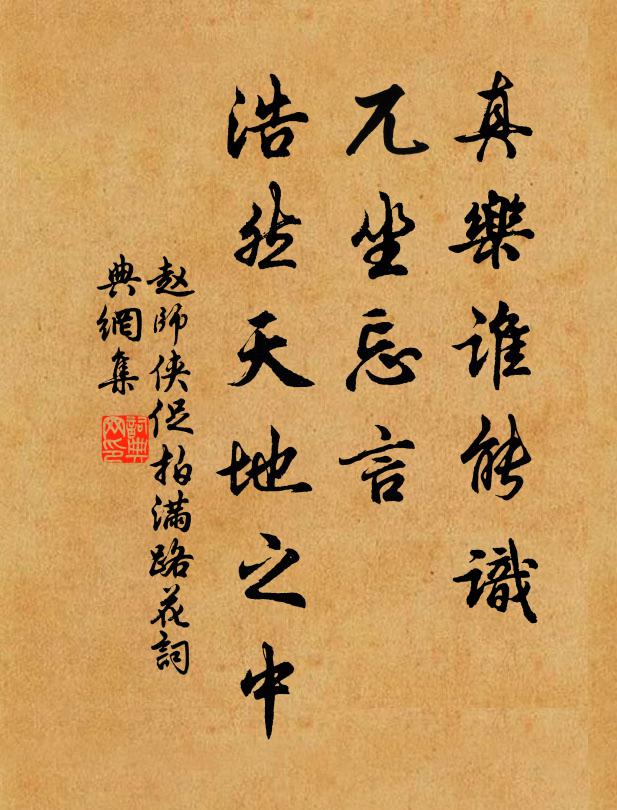 真樂誰能識
兀坐忘言
浩然天地之中
赵師侠促拍满路花詞
典網集
詞典
网印